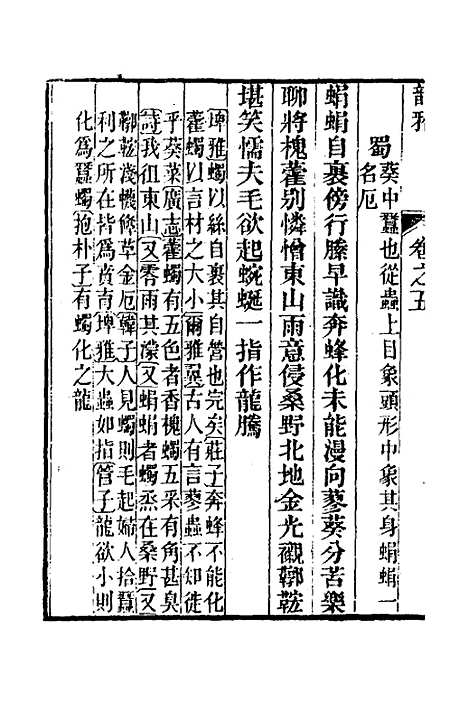 韻雅 卷之五
蜀 葵中蠶也從蟲上目象頭形中象其身蜎蜎一
名厄
蜎蜎自裹傍行縢早識奔蜂化未能漫向蓼葵分苦樂
聊將槐藿别憐憎東山雨意侵桑野北地金光襯鞹鞃
堪笑懦夫毛欲起蜿蜒一指作龍騰
埤雅蠋以絲自裹其自營也完矣莊子奔蜂不能化
藿蠋以言材之大小爾雅翼古人有言蓼蟲不知徙
乎葵菜廣志藿蠋有五色者香槐蠋五采有角甚臭
詩我徂東山又零雨其濛又蜎蜎者蠋烝在桑野又
鞹鞃淺幭鞗革金厄韓子人見蠋則毛起婦人拾蠶
利之所在皆爲賁育埤雅大蟲如指管子龍欲小則
化爲蠶蠋抱朴子有蠋化之龍